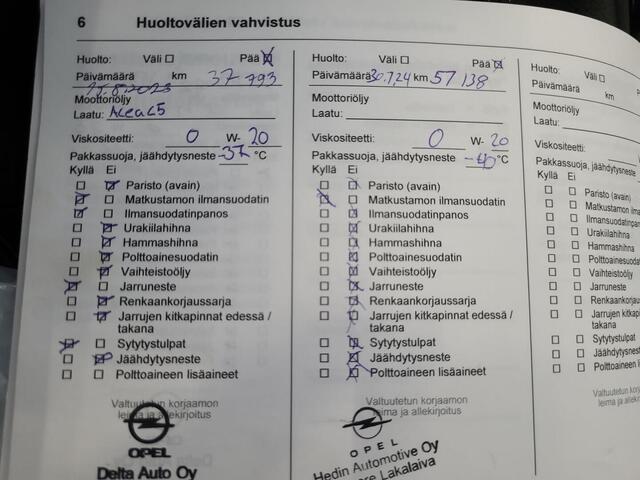 6 Huoltovälien vahvistus
Huolto: Väli Pää
Päivämäärä km 37 793
15.8.2023
Moottoriöljy
Laatu: Acea C5
Viskositeetti: 0 W- 20
Pakkassuoja, jäähdytysneste -37 °C
Kyllä Ei
Paristo (avain)
Matkustamon ilmansuodatin
Ilmansuodatinpanos
Urakiilahihna
Hammashihna
Polttoainesuodatin
Vaihteistoöljy
Jarruneste
Renkaankorjaussarja
Jarrujen kitkapinnat edessä /
takana
Sytytystulpat
Jäähdytysneste
Polttoaineen lisäaineet
Valtuutetun korjaamon
leima ja allekirjoitus
OPEL
Delta Auto Oy
Huolto: Väli Pää
Päivämäärä 30.7.24 km 57 138
Moottoriöljy
Laatu:
Viskositeetti: 0 W- 20
Pakkassuoja, jäähdytysneste -40 °C
Kyllä Ei
Paristo (avain)
Matkustamon ilmansuodatin
Ilmansuodatinpanos
Urakiilahihna
Hammashihna
Polttoainesuodatin
Vaihteistoöljy
Jarruneste
Renkaankorjaussarja
Jarrujen kitkapinnat edessä /
takana
Sytytystulpat
Jäähdytysneste
Polttoaineen lisäaineet
Valtuutetun korjaamon
leima ja allekirjoitus
OPEL
Hedin Automotive Oy
Lakalaiva
Huolto: Väli
Päivämäärä km
Moottoriöljy
Laatu:
Viskositeetti:
Pakkassuoja, jäähdytysn
Kyllä Ei
Paristo (avain)
Matkustamon ilma
Ilmansuodatinpa
Urakiilahihna
Hammashihna
Polttoainesuodat
Vaihteistoöljy
Jarruneste
Renkaankorjaus
Jarrujen kitkapin
takana
Sytytystulpat
Jäähdytysneste
Polttoaineen lisä
Valtuutetun
leima ja alle